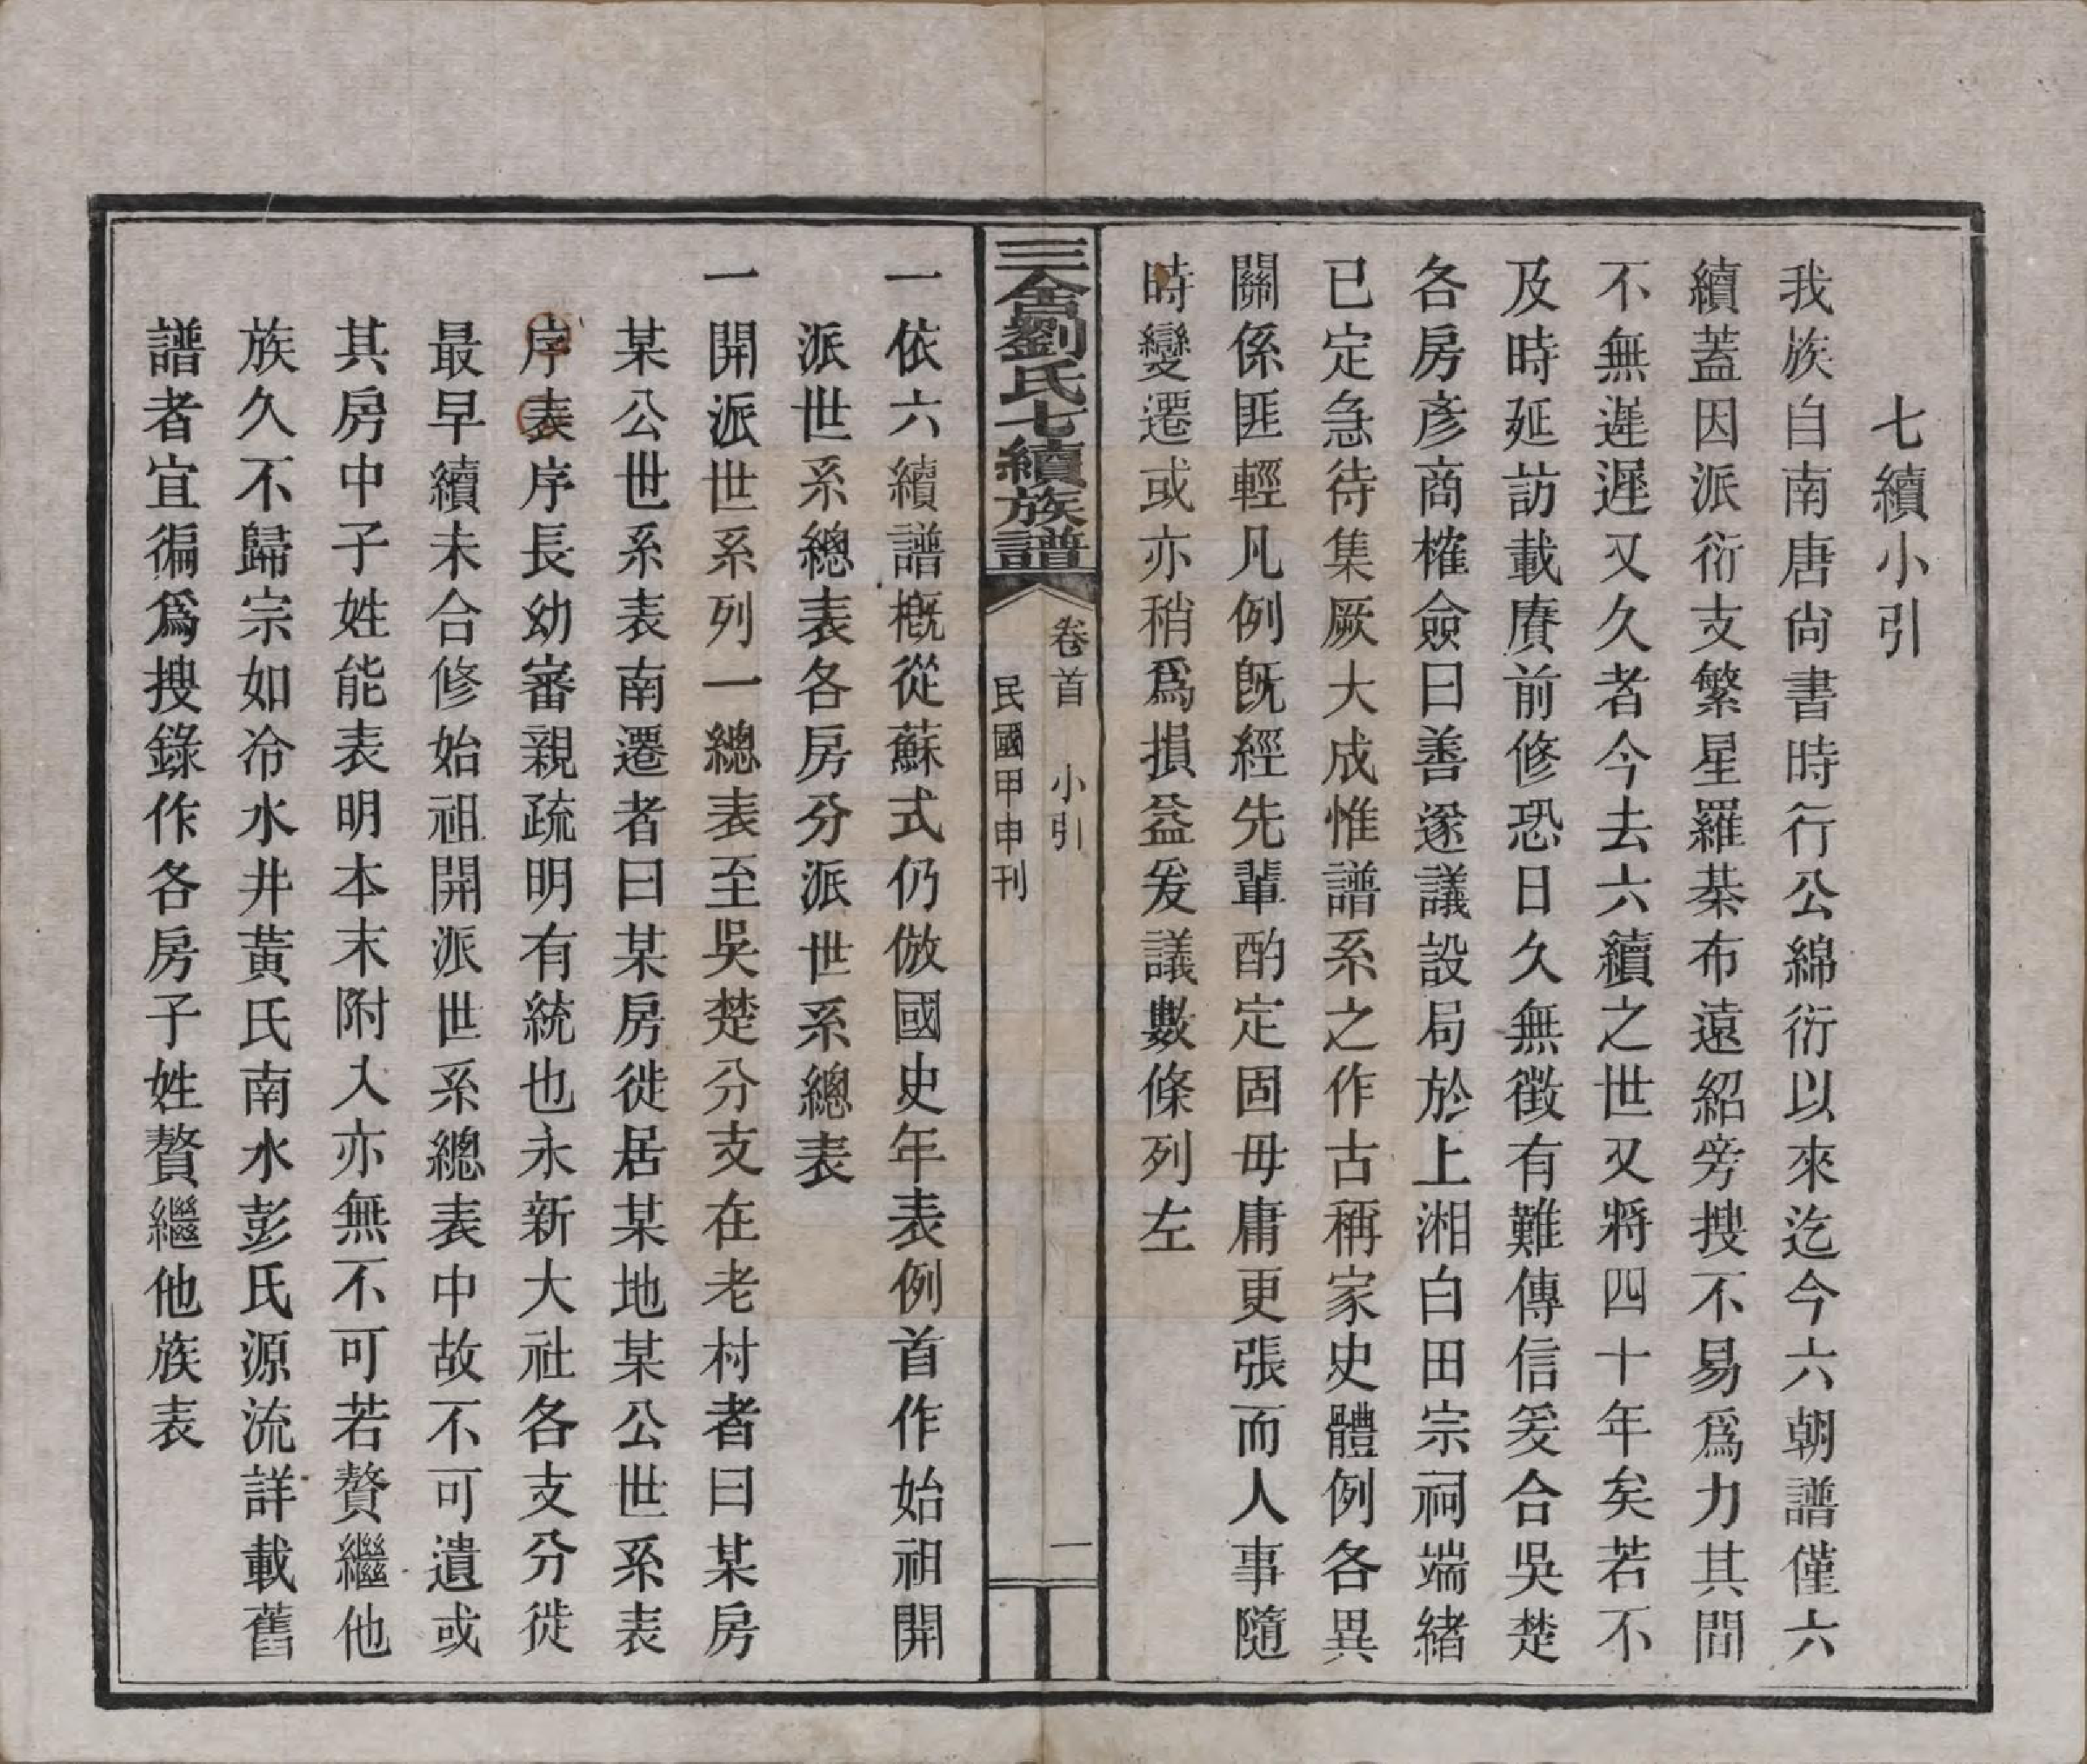 七續小引
我族自南唐尙書時行公綿衍以來迄今六朝譜僅六
續蓋因派衍支繁星羅棊布遠紹旁搜不易爲力其間
不無遲遲又久者今去六續之世又將四十年矣若不
及時延訪載賡前修恐日久無徵有難傳信爰合吳楚
各房彥商榷僉曰善遂議設局於上湘白田宗祠端緒
已定急待集厥大成惟譜系之作古稱家史體例各異
關係匪輕凡例旣經先輩酌定固毋庸更張而人事隨
時變遷或亦稍爲損益爰議數條列左
三舍劉氏七續族譜
卷首 小引 一
民國甲申刊
一依六續譜概從蘇式仍倣國史年表例首作始祖開
派世系總表各房分派世系總表
一開派世系列一總表至吳楚分支在老村者曰某房
某公世系表南遷者曰某房徙居某地某公世系表
序表序長幼審親疏明有統也永新大社各支分徙
最早續未合修始祖開派世系總表中故不可遺或
其房中子姓能表明本末附入亦無不可若贅繼他
族久不歸宗如冷水井黃氏南水彭氏源流詳載舊
譜者宜徧爲搜錄作各房子姓贅繼他族表